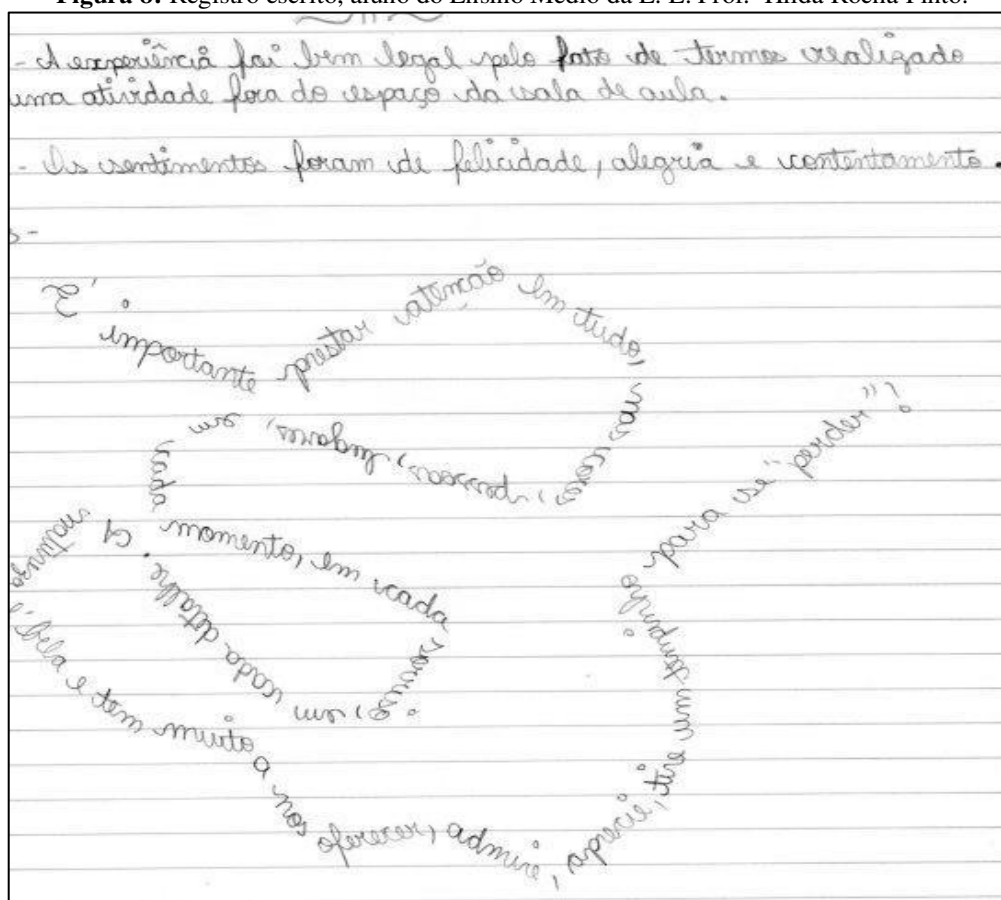 Figura 6: Registro escrito, aluno do Ensino Médio da E. E. Profª Tilda Rocha Pinto.
- A experiência foi bem legal pelo fato de termos realizado
uma atividade fora do espaço da sala de aula.
- Os sentimentos foram de felicidade, alegria e contentamento.
É importante prestar atenção em tudo, nas coisas, pessoas, lugares, em cada momento, em cada sorriso, em cada detalhe. A natureza é bela e tem muito a nos oferecer, admire, aprecie, tire um tempinho para se "perder"!